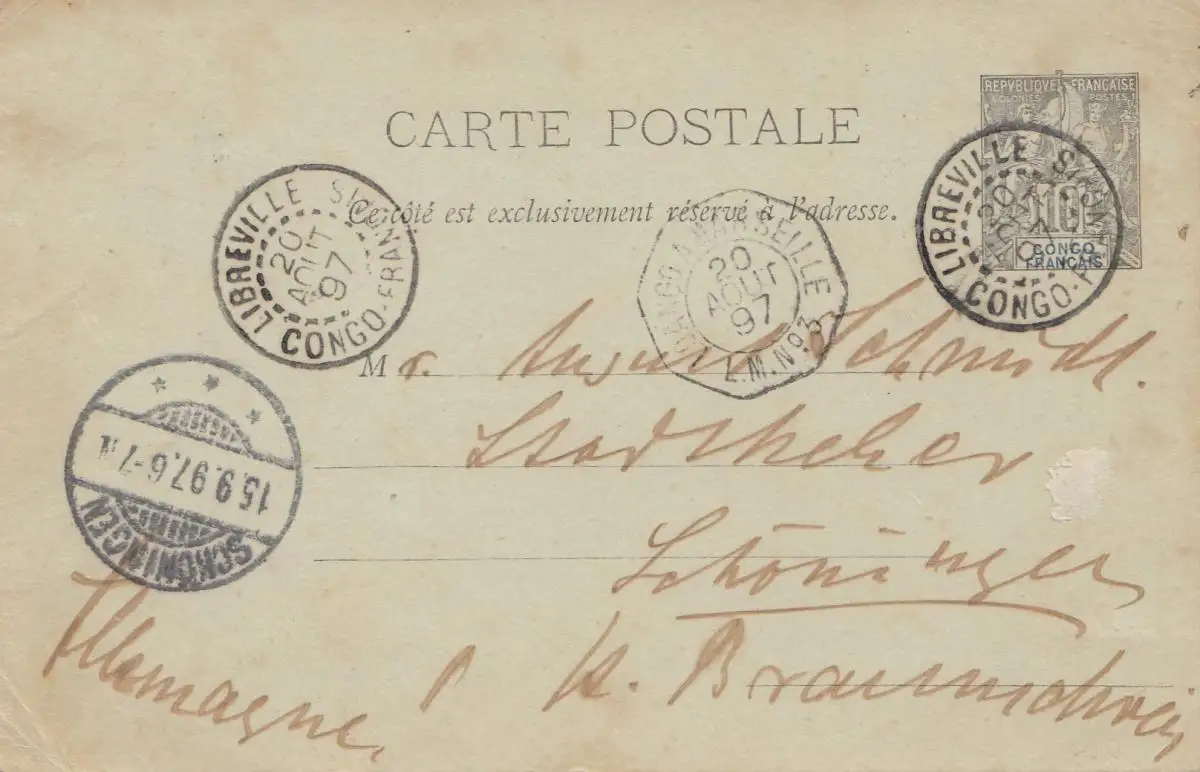 REPVBLIQVE FRANÇAISE
COLONIES POSTES
10
CONGO
FRANÇAIS
CARTE POSTALE
Ce côté est exclusivement réservé à l'adresse.
LIBREVILLE
CONGO-FRANÇAIS
20
AOUT
97
LOANGO A MARSEILLE
20
AOUT
97
L.M.Nº3
LIBREVILLE
CONGO-
20
AOUT
97
Mr. August Schmidt.
Schöningen
Allemagne. Braunschweig
15.9.97.6-7 N.
SCHÖNINGEN